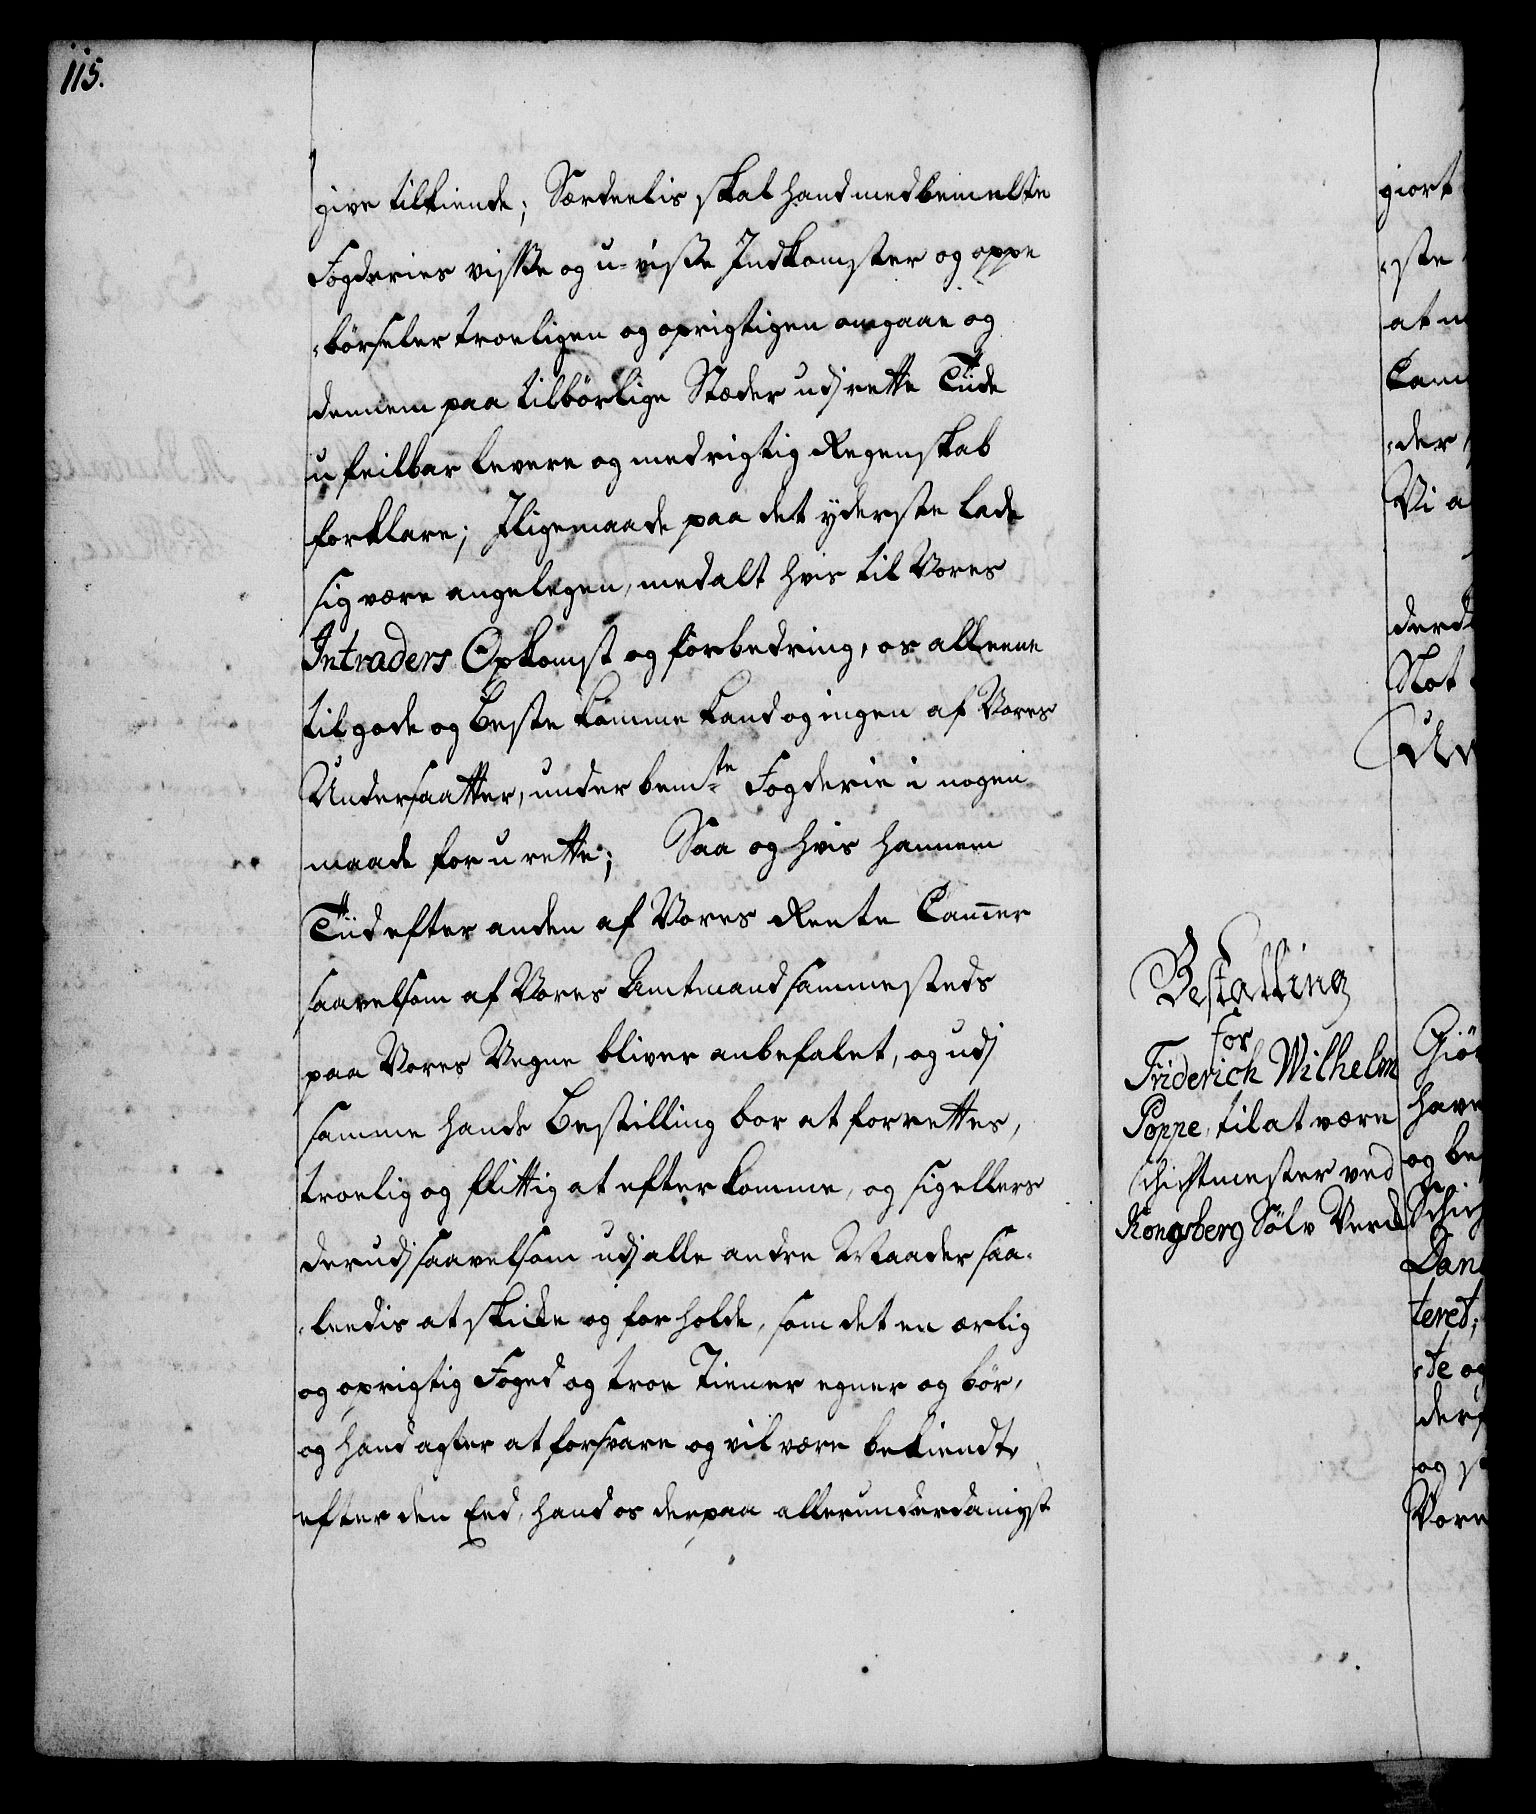 115.
give tilkiende; Særdeelis skal hand med bemelte
Fogderies visse og u-visse Indkomster og oppe
-børseler troeligen og oprigtigen omgaae og
dennem paa tilbørlige Stæder udj rette Tiide
u feilbar levere og med rigtig Regenskab
forklare; Iligemaade paa det yderste lade
sig være angelegen, med alt hvis til Vores
Intraders Opkomst og forbedring, os alleene
til gode og beste komme kand og ingen af Vores
Undersaatter, under bemte Fogderie i nogen
maade for u rette; Saa og hvis hannem
Tiid efter anden af Vores Rente Cammer
saavelsom af Vores Amtmand sammesteds
paa Vores Vegne bliver anbefalet, og udj
samme hands bestilling bor at forrettes,
troelig og flittig at efterkomme, og sig ellers
derudj saavelsom udj alle andre Maader saa-
-leedis at skicke og forholde, som det en ærlig
og oprigtig Foged og troe Tiener egner og bør,
og hand agter at forsvare og vil være bekiendt,
efter den Eed, hand os derpaa allerunderdanigst
Bestalling
for
Friderich Wilhelm
Poppe, til at være
Schichtmester ved
Kongsberg Sølv Verck
giort
-ste
at m
Cam
-der
Vi a
derd
Slot
Giör
have
og be
Schich
Dan
teret,
-te og
derf
og s
Vore